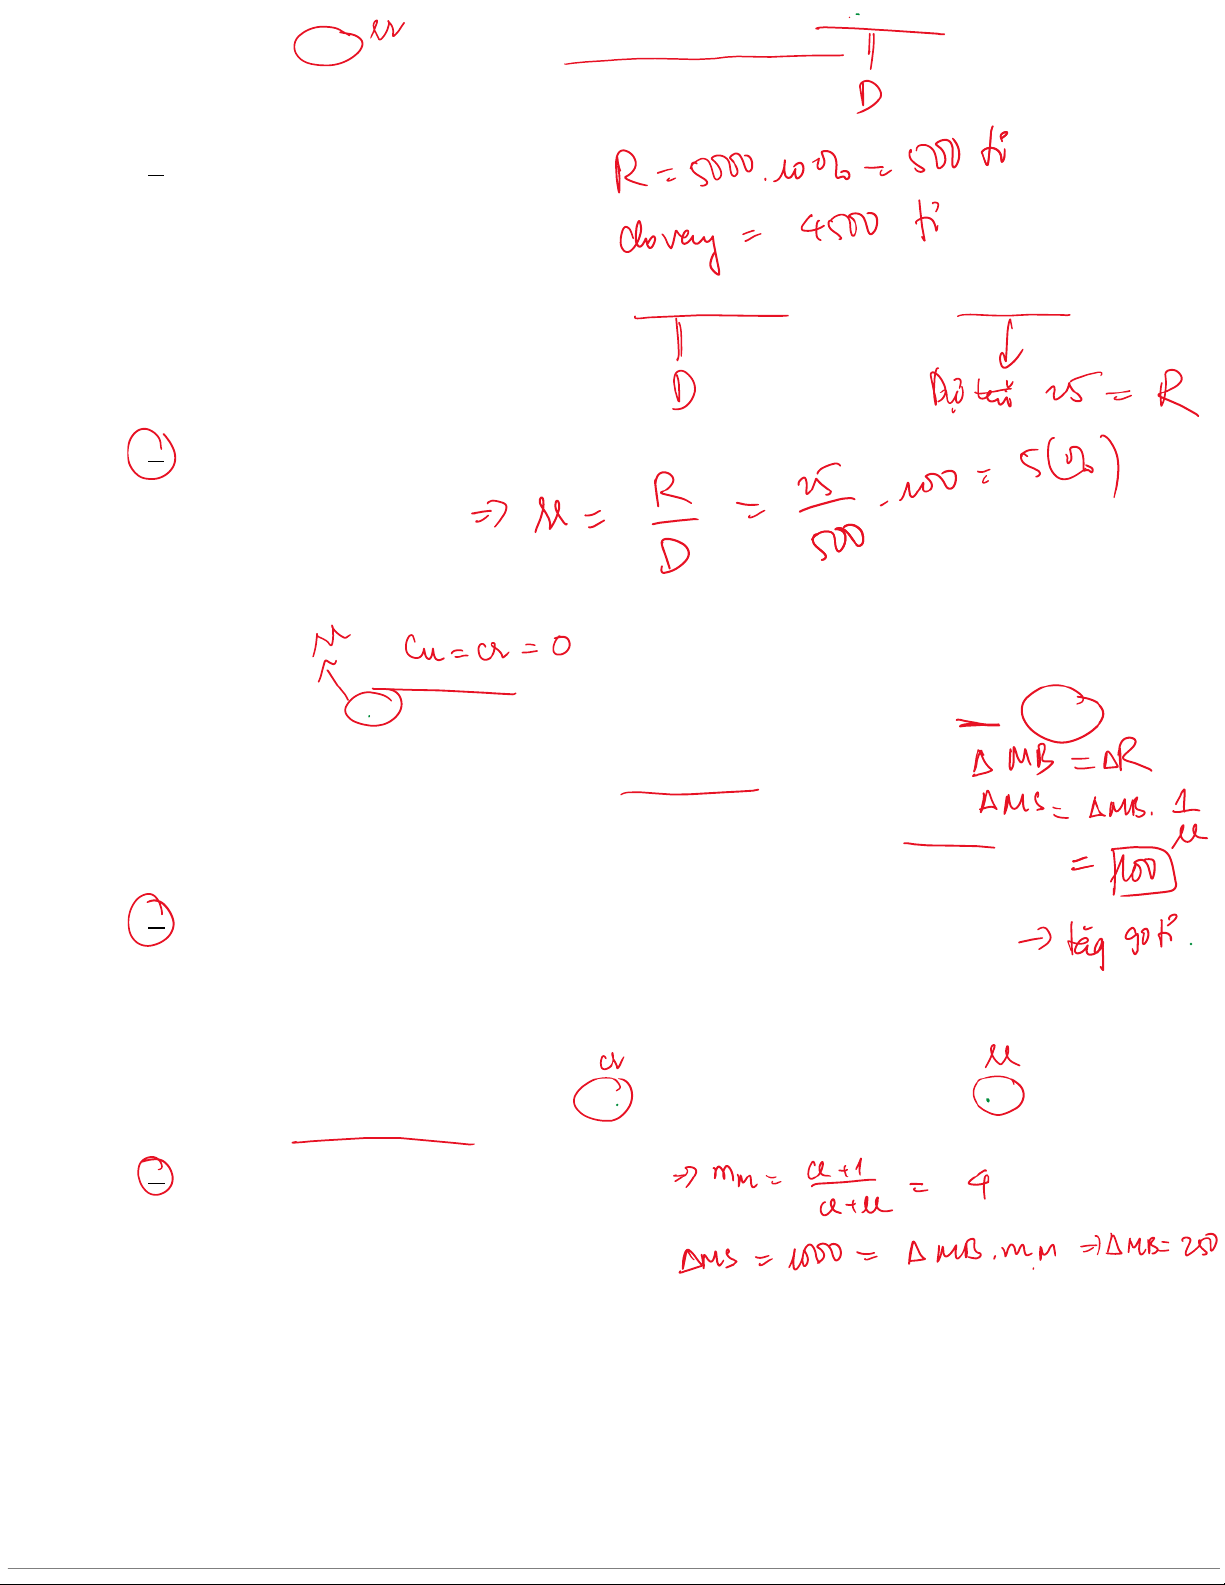 rr
D
R = 5000.10% = 500 tỉ
cho vay = 4500 tỉ
D
Dự trữ 25 = R
=> rr = R/D = 25/500 . 100 = 5(%)
rr
Cu = cr = 0
Δ MB = ΔR
ΔMS = ΔMB. 1/rr
= 100
→ tăg 90 tỉ.
cr
rr
=> mM = cr+1/cr+rr = 4
ΔMS = 1000 = ΔMB.mM => ΔMB = 250